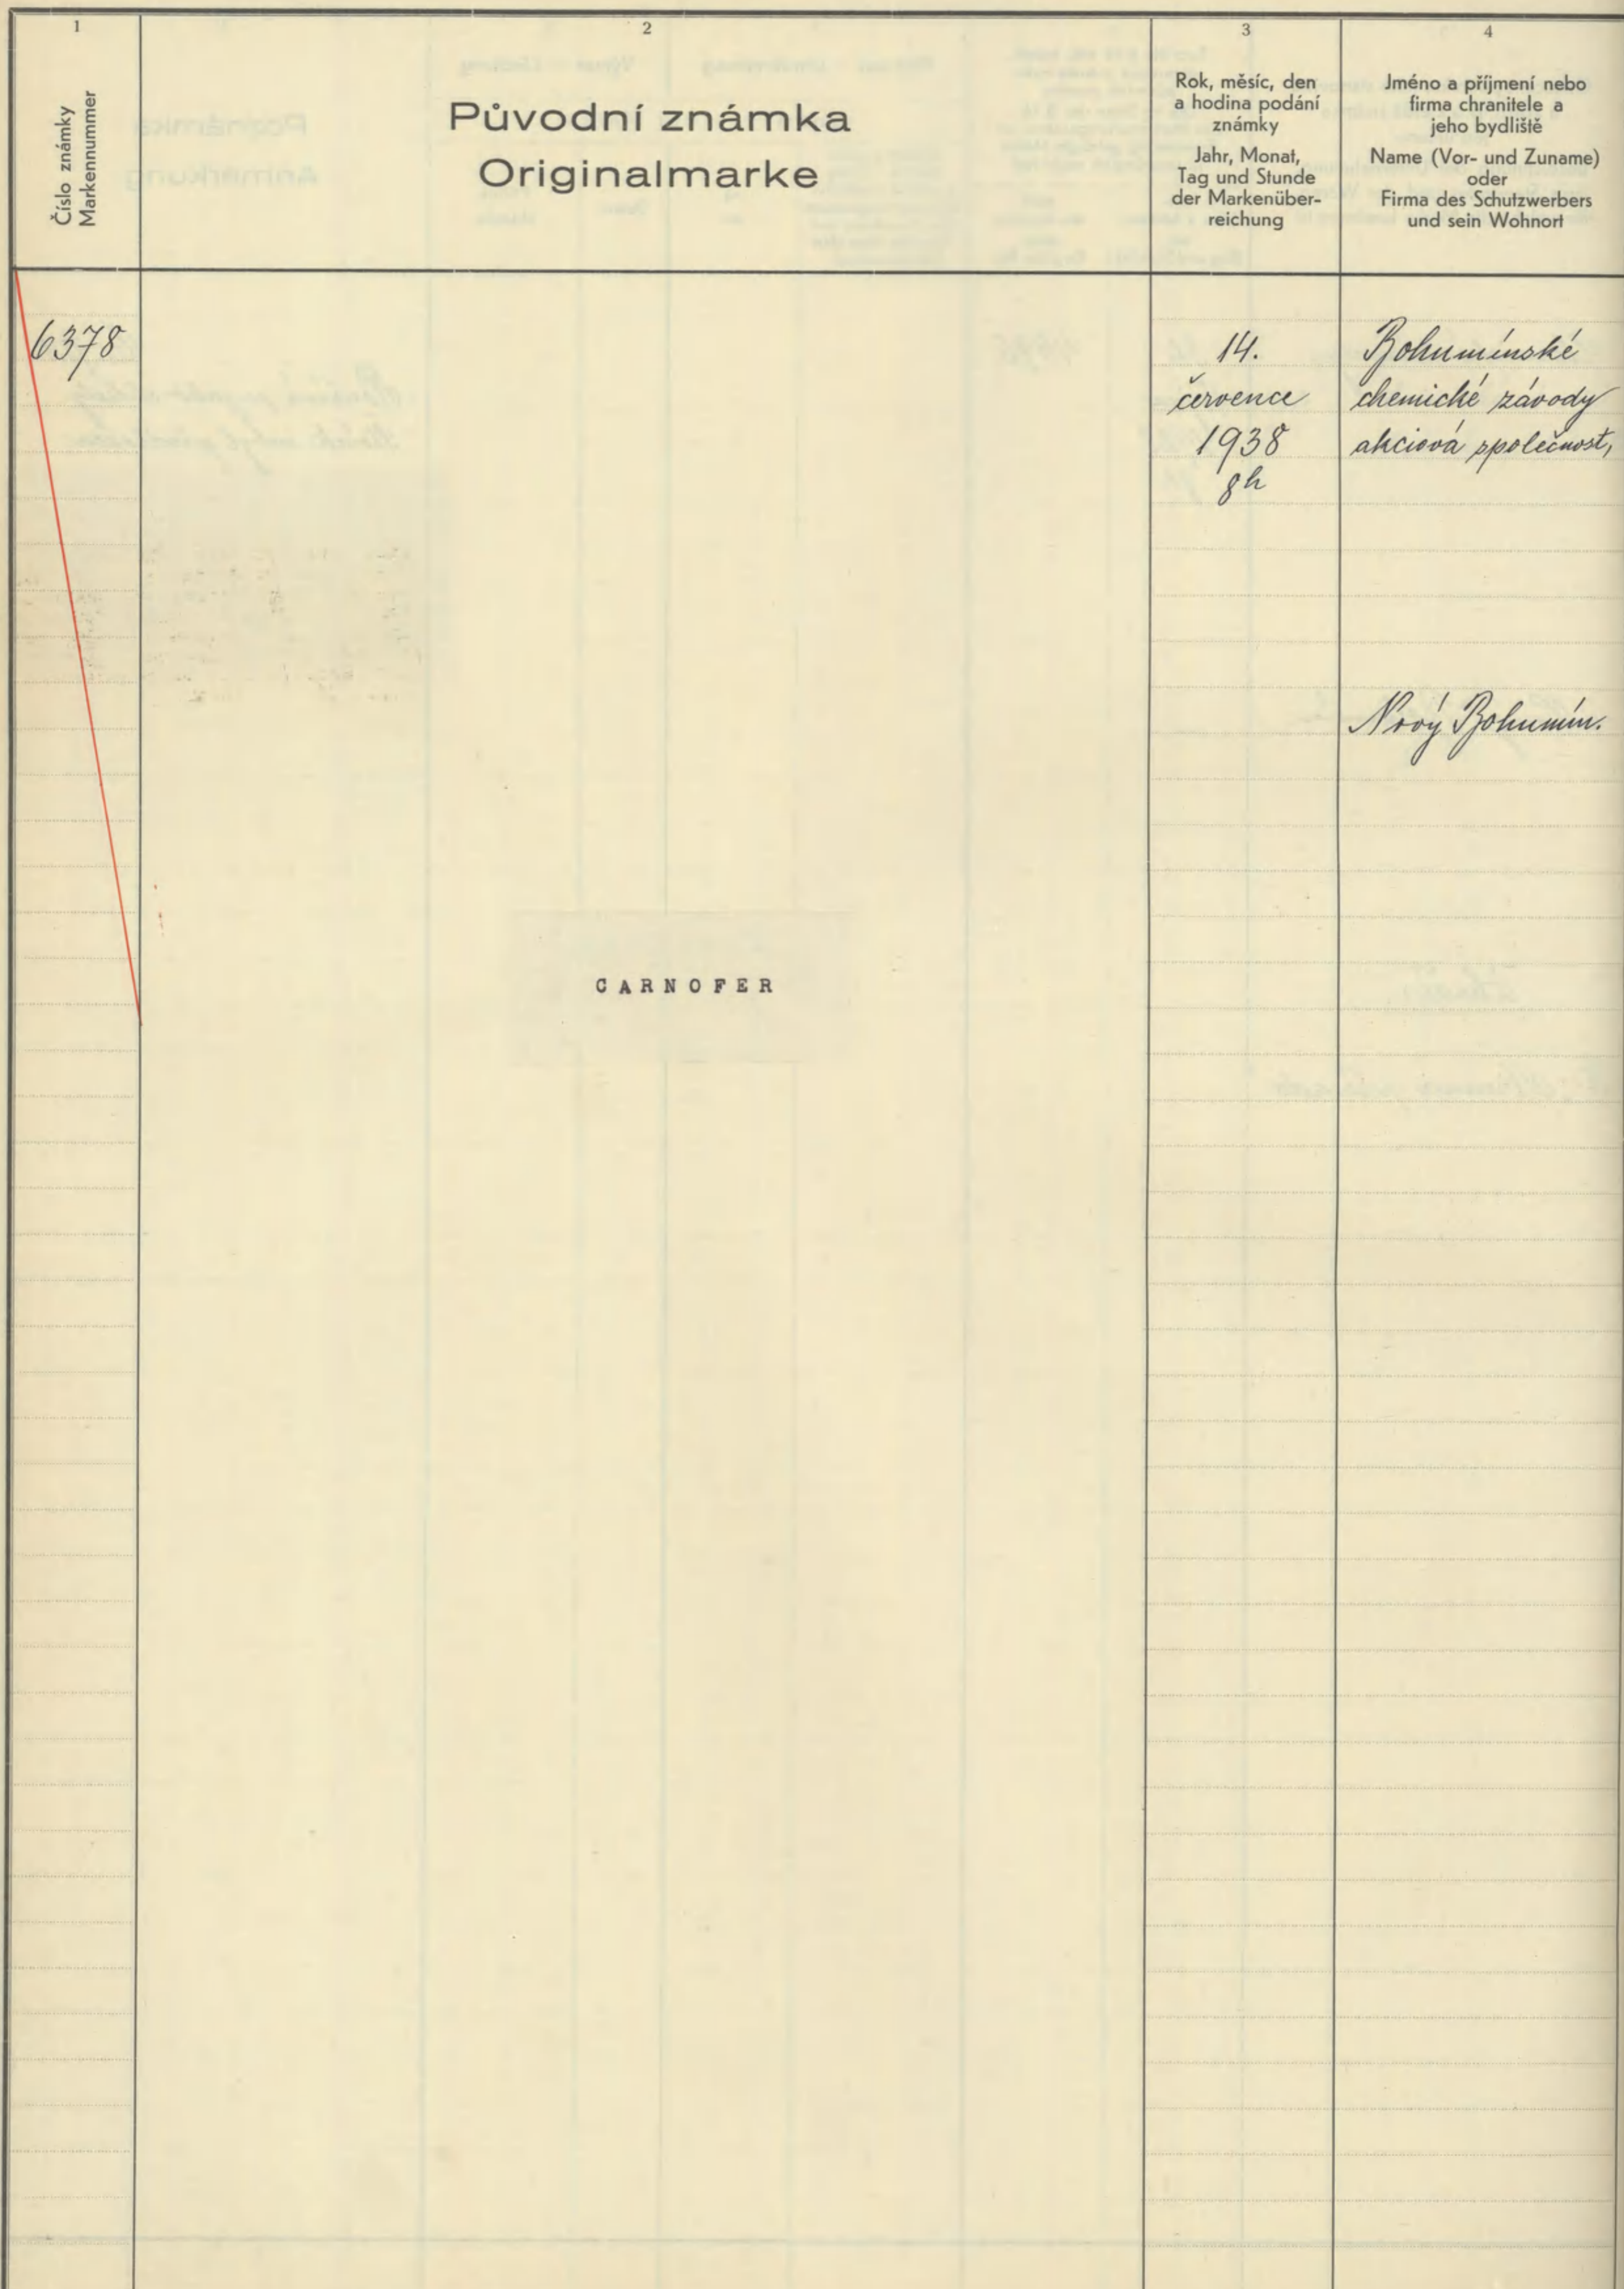 1
Číslo známky
Markennummer
2
Původní známka
Originalmarke
3
Rok, měsíc, den
a hodina podání
známky
Jahr, Monat,
Tag und Stunde
der Markenüber-
reichung
4
Jméno a příjmení nebo
firma chranitele a
jeho bydliště
Name (Vor- und Zuname)
oder
Firma des Schutzwerbers
und sein Wohnort
6378
CARNOFER
14.
července
1938
8h
Bohumínské
chemické závody
akciová společnost,
Nový Bohumín.